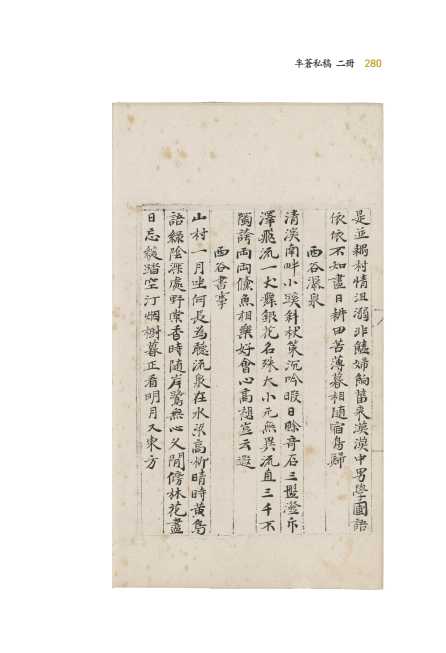 半蒼私稿 二冊 280
是並耦村情沮溺非饁婦餉菑來漠漠中男學圃語
依依不知盡日耕田苦薄暮相隨宿鳥歸
西谷瀑泉
清溪南畔小蹊斜杖策沉吟暇日賒奇石三盤澄斥
澤飛流一丈露銀花名殊大小元無異流直三千不
獨誇両両儵魚相樂好會心高趣豈云遐
西谷書事
山村一月坐何長為聽流泉在水梁高柳晴時黃鳥
語綠陰深處野棠香時随岸鷺無心又閒傍林花盡
日忘緩踏空汀烟樹暮正看明月又東方